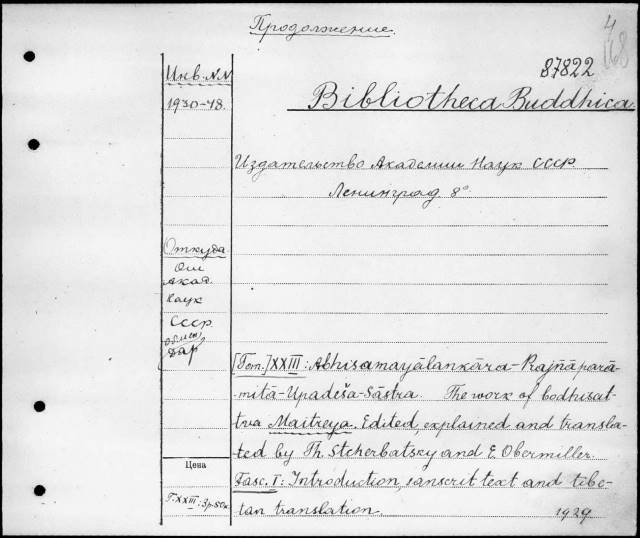 Продолжение.
4
168
87822
Инв. NN
1930-48.
Bibliotheca Buddhica
Издательство Академии Наук СССР
Ленинград. 8°
Откуда
От
Акад.
Наук
СССР.
обмен
Дар
[Tom.] XXIII: Abhisamayālankāra-Rajñāpara-
mitā-Upadeśa-Sāstra. The work of bodhisat-
tva Maitreya. Edited, explained and transla-
ted by Th. Stcherbatsky and E. Obermiller.
Fasc. I: Introduction, sanscrit text and tibe-
tan translation. 1929
Цена
T. XXIII: 3р.50к.